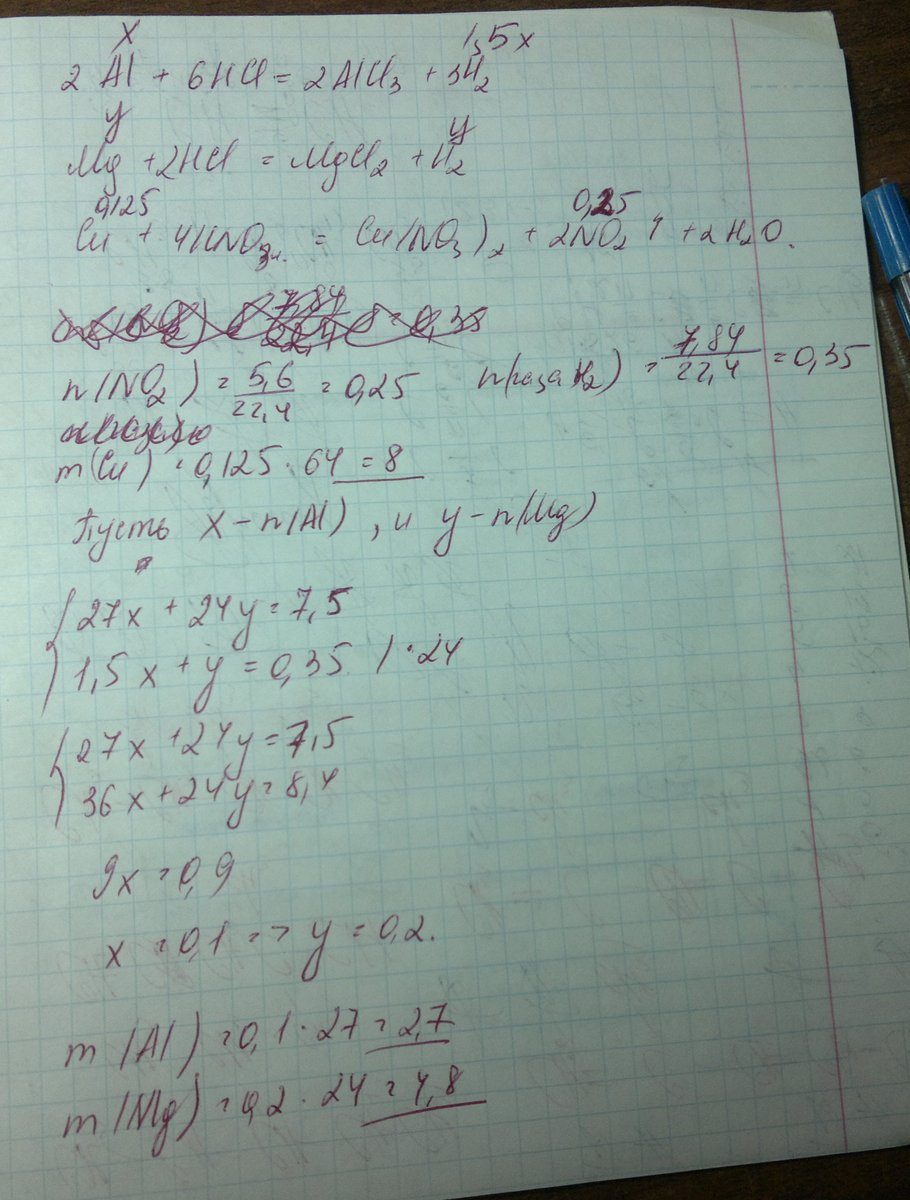 x 1,5x
2 Al + 6HCl = 2AlCl₃ + 3H₂
y y
Mg + 2HCl = MgCl₂ + H₂
0,125 0,25
Cu + 4HNO₃ = Cu(NO₃)₂ + 2NO₂↑ + 2H₂O.
7,84 = 0,35
n(NO₂) = 5,6/22,4 = 0,25 n(газа H₂) = 7,84/22,4 = 0,35
m(Cu) = 0,125 · 64 = 8
Пусть x – n(Al), и y – n(Mg)
27x + 24y = 7,5
1,5x + y = 0,35 / · 24
27x + 24y = 7,5
36x + 24y = 8,4
9x = 0,9
x = 0,1 => y = 0,2.
m(Al) = 0,1 · 27 = 2,7
m(Mg) = 0,2 · 24 = 4,8